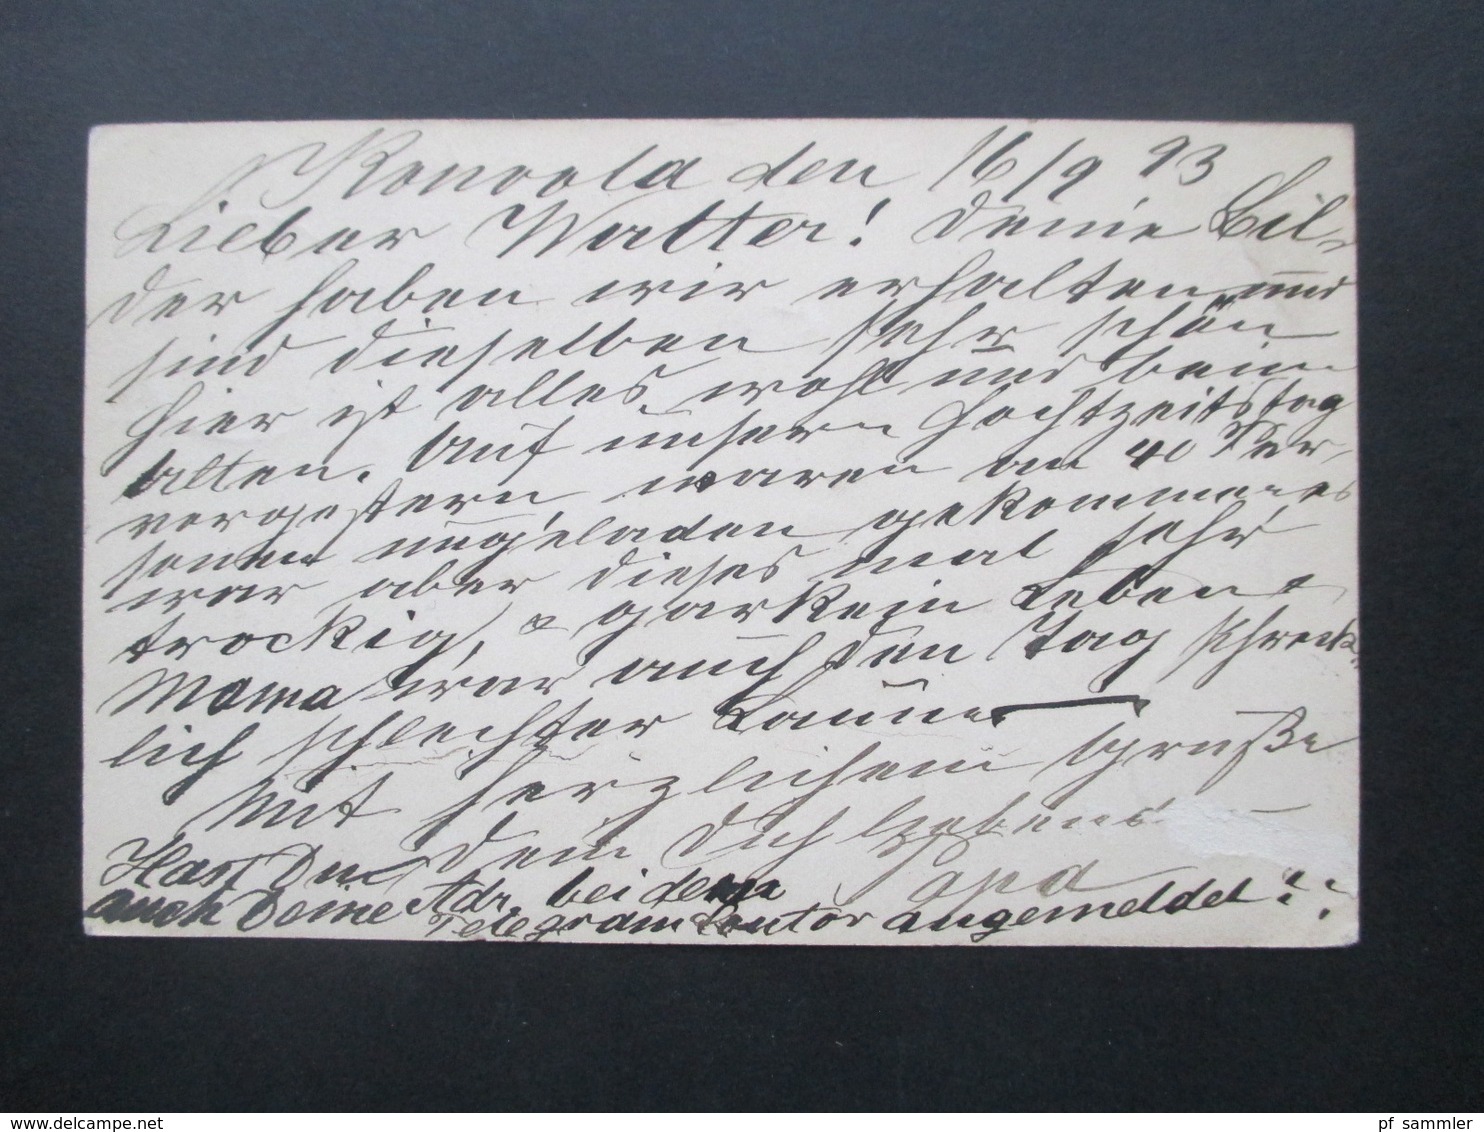 Kennoela den 16/9 93
Lieber Walter! Deine Bil-
der haben wir erhalten und
sind dieselben sehr schön
hier ist alles wohl und beim
alten. Auf unsern Hochtzeitstag
vorgestern waren an 40 Per-
sonen ungeladen gekommen es
war aber dieses mal sehr
trockig, gar kein Leben
Mama war auch den Tag schreck-
lich schlechter Laune
Mit herzlichem Gruße
Dein Dich liebens
Papa
Hast Du
auch Deine Adr. bei dem
Telegramcontor angemeldet??
www.delcampe.net
pf_sammler